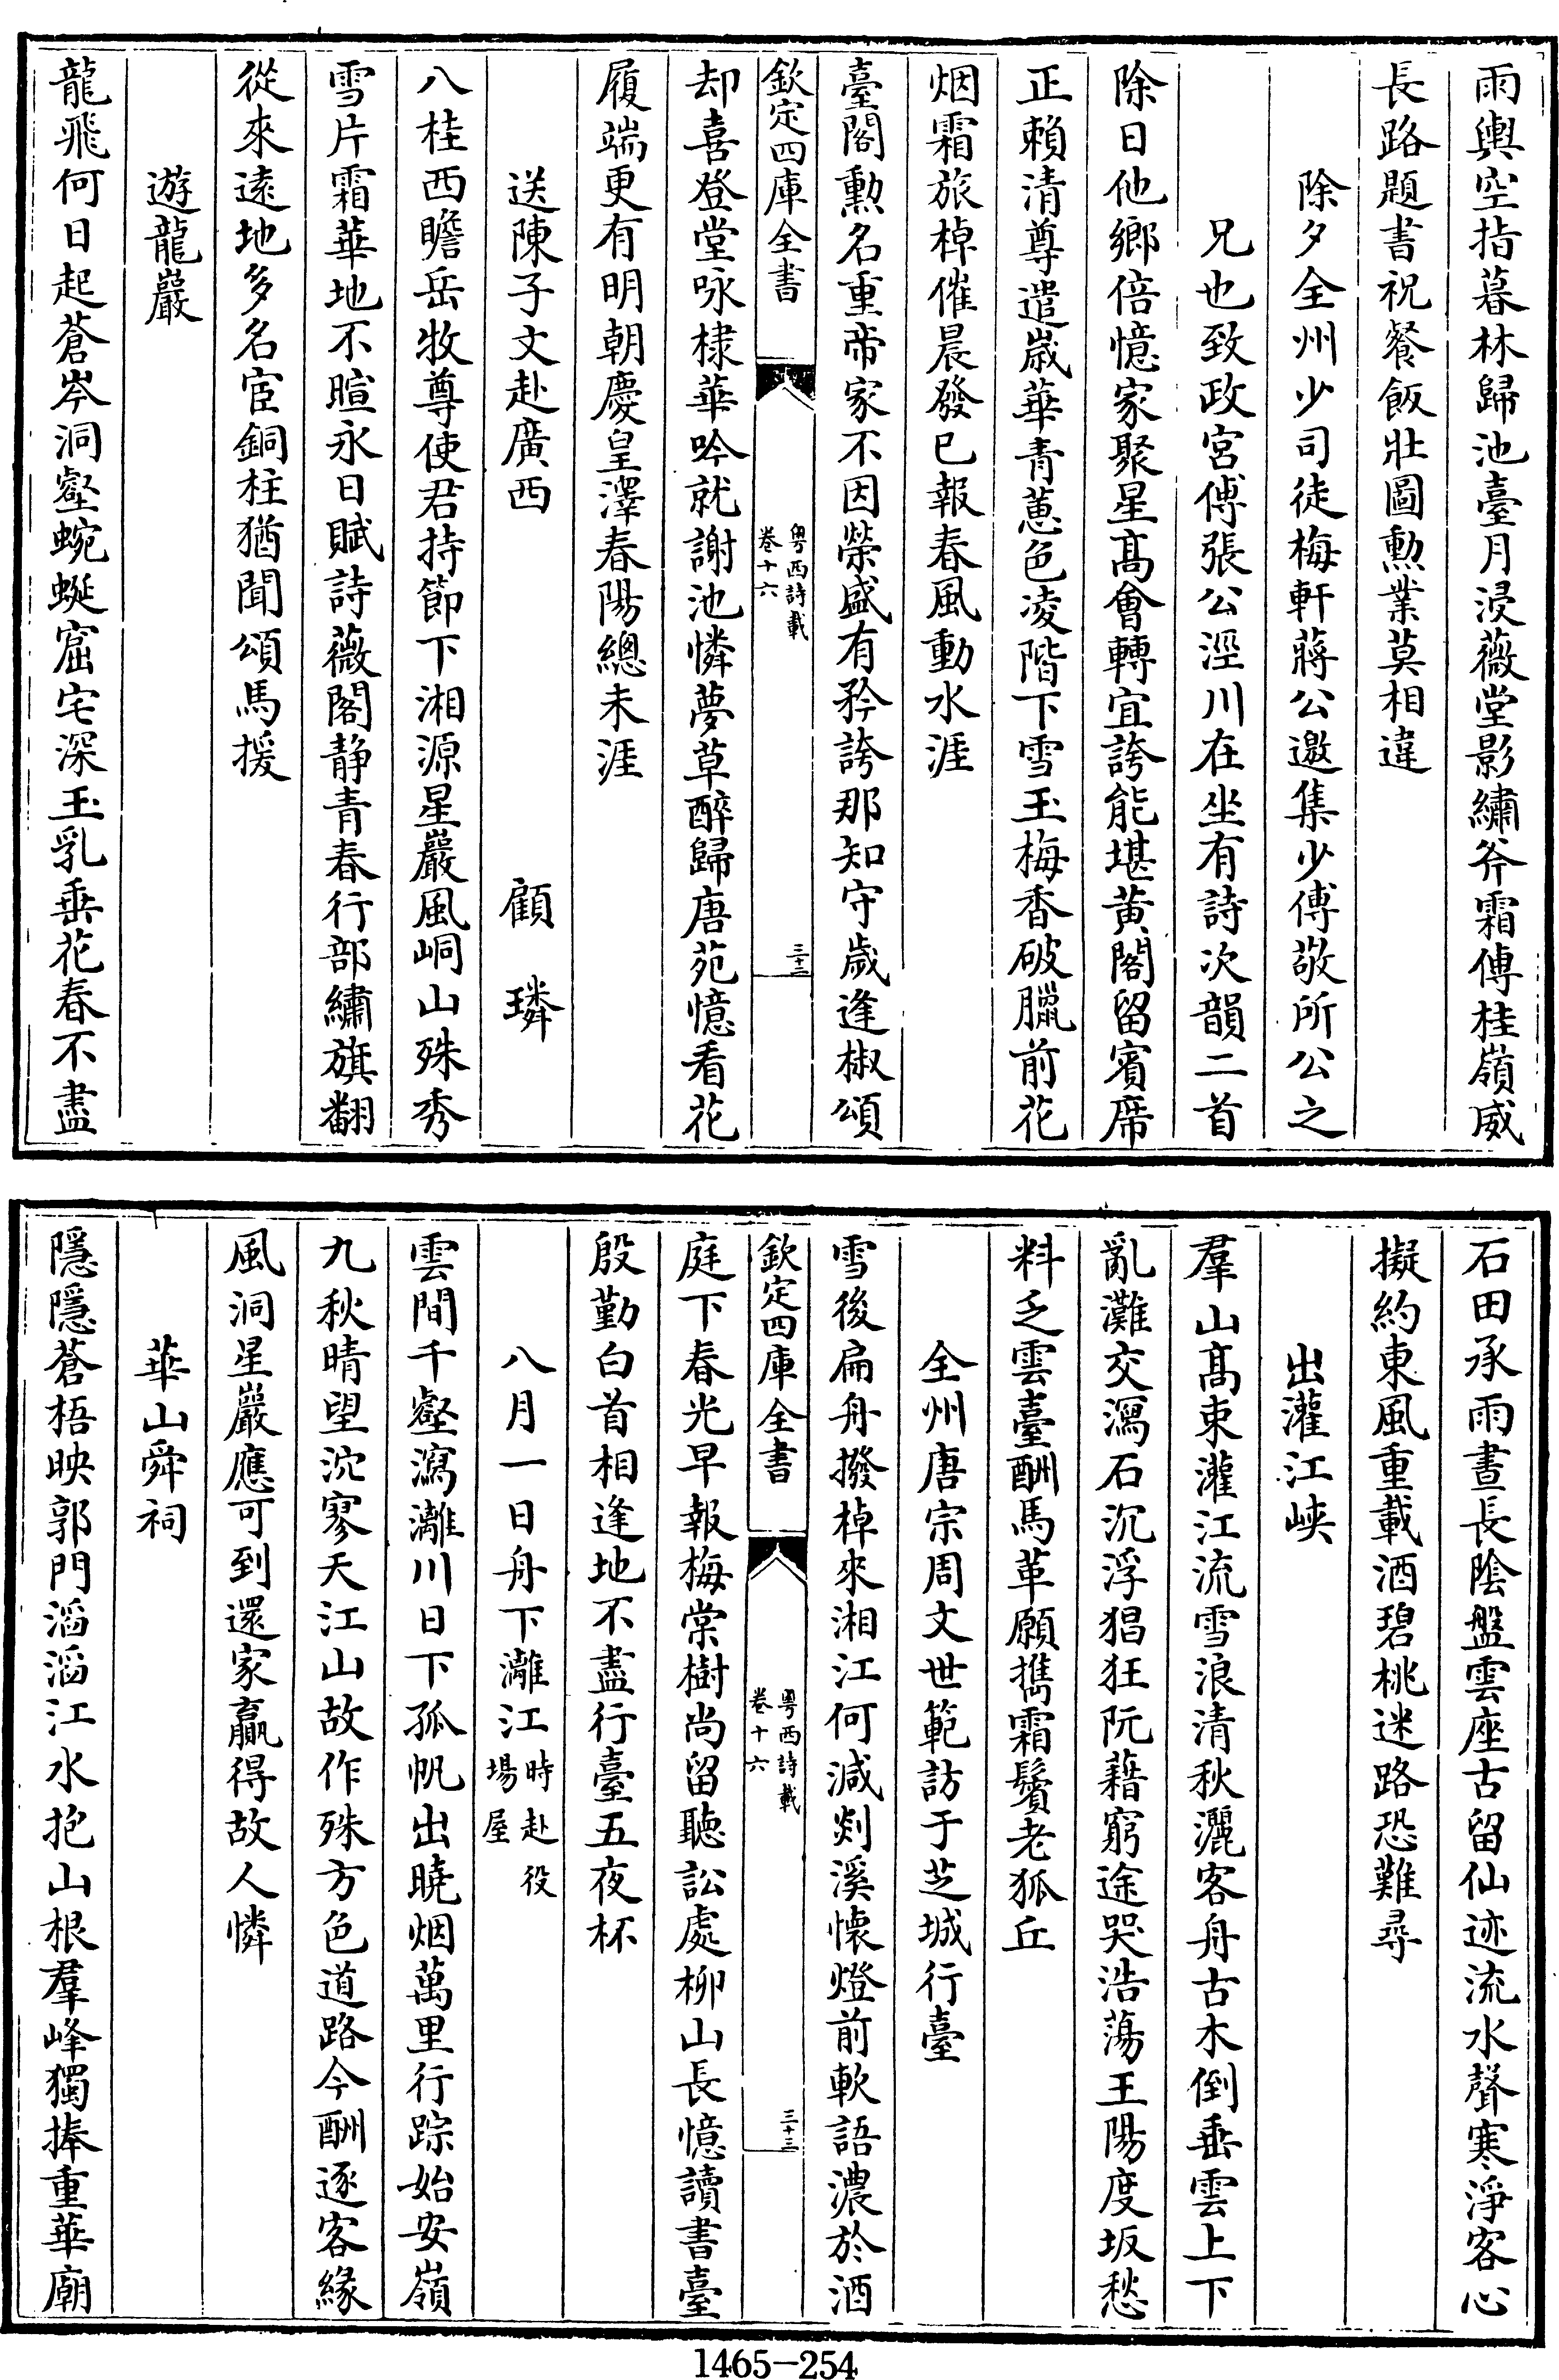 雨輿空指暮林歸池臺月浸薇堂影繡斧霜傳桂嶺威
長路題書祝餐飯壯圖勲業莫相違
除夕全州少司徒梅軒蔣公邀集少傅敬所公之
兄也致政宮傅張公涇川在坐有詩次韻二首
除日他鄉倍憶家聚星髙會轉宜誇能堪黄閣留賓席
正賴清尊遣歲華青蔥色凌階下雪玉梅香破臘前花
烟霜旅棹催晨發已報春風動水涯
臺閣勲名重帝家不因榮盛有矜誇那知守歲逢椒頌
欽定四庫全書
粤西詩載
卷十六
三十二
却喜登堂咏棣華吟就謝池憐夢草醉歸唐苑憶看花
履端更有明朝慶皇澤春陽總未涯
送陳子文赴廣西 顧璘
八桂西瞻岳牧尊使君持節下湘源星巖風峒山殊秀
雪片霜華地不暄永日賦詩薇閣静青春行部繡旗翻
從來逺地多名宦銅柱猶聞頌馬援
遊龍巖
龍飛何日起蒼岑洞壑蜿蜒窟宅深玉乳垂花春不盡
石田承雨晝長陰盤雲座古留仙迹流水聲寒淨客心
擬約東風重載酒碧桃迷路恐難尋
出灌江峽
羣山髙束灌江流雪浪清秋灑客舟古木倒垂雲上下
亂灘交瀉石沉浮猖狂阮藉窮途哭浩蕩王陽度坂愁
料乏雲臺酬馬革願擕霜鬢老狐丘
全州唐宗周文世範訪于芝城行臺
雪後扁舟撥棹來湘江何減剡溪懐燈前軟語濃於酒
欽定四庫全書
粤西詩載
卷十六
三十三
庭下春光早報梅棠樹尚留聽訟處柳山長憶讀書臺
殷勤白首相逢地不盡行臺五夜杯
八月一日舟下灕江時赴役場屋
雲間千壑瀉灕川日下孤帆出曉烟萬里行踪始安嶺
九秋晴望泬寥天江山故作殊方色道路今酬逐客緣
風洞星巖應可到還家贏得故人憐
華山舜祠
隱隱蒼梧映郭門滔滔江水抱山根羣峰獨捧重華廟
1465-254